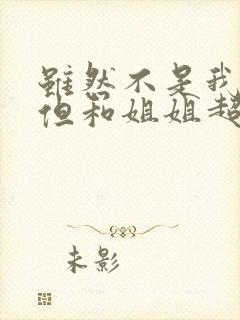 雖然不是我
但和姐姐超
未影